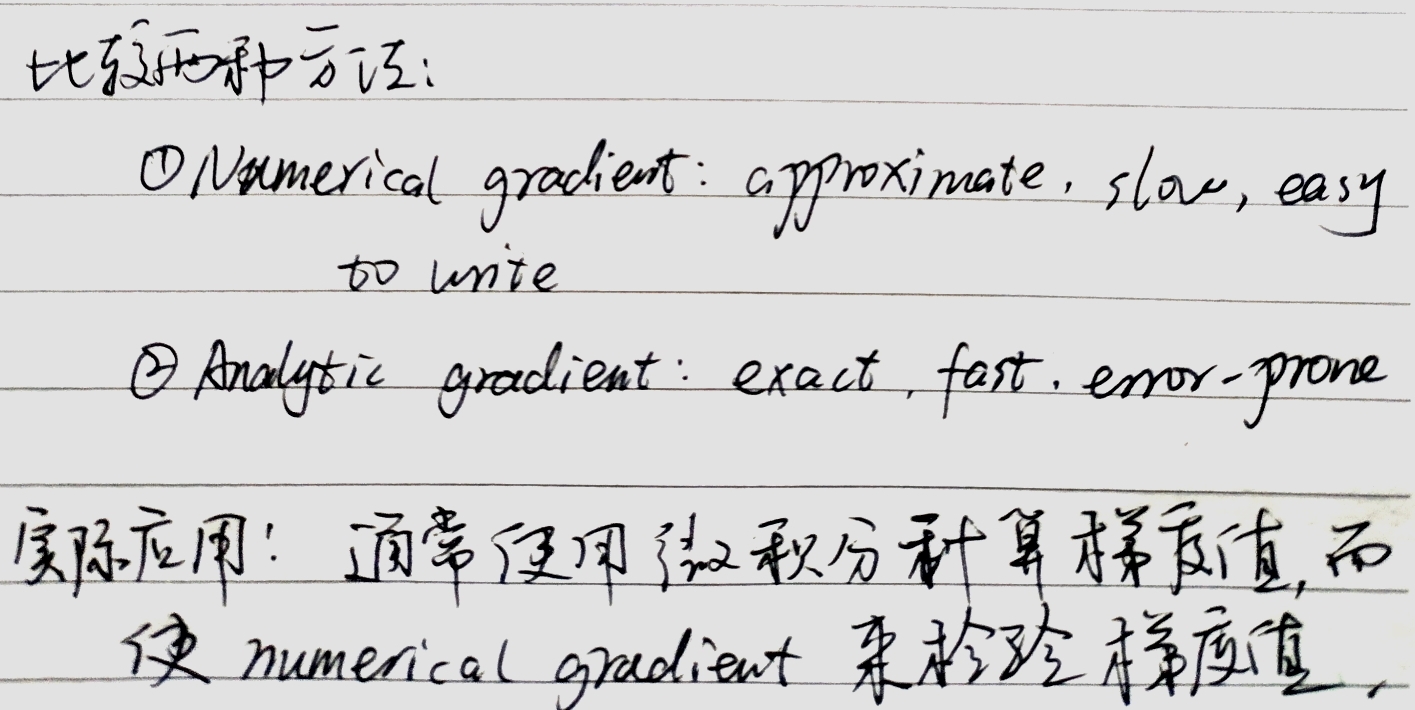 比较两种方法:
①Numerical gradient: approximate, slow, easy
to write
② Analytic gradient: exact, fast, error-prone
实际应用: 通常使用微积分计算梯度值,而
使 numerical gradient 来检验梯度值,